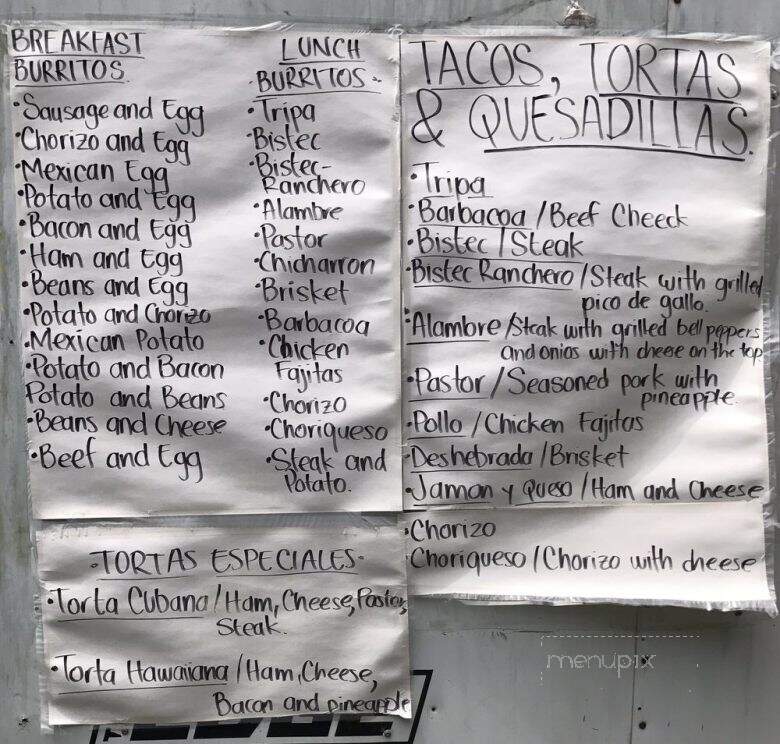 BREAKFAST
BURRITOS
•Sausage and Egg
•Chorizo and Egg
•Mexican Egg
•Potato and Egg
•Bacon and Egg
•Ham and Egg
•Beans and Egg
•Potato and Chorizo
•Mexican Potato
•Potato and Bacon
Potato and Beans
•Beans and Cheese
•Beef and Egg
LUNCH
BURRITOS
•Tripa
•Bistec
•Bistec-
Ranchero
•Alambre
•Pastor
•Chicharron
•Brisket
•Barbacoa
•Chicken
Fajitas
•Chorizo
•Choriqueso
•Steak and
Potato.
TACOS, TORTAS
& QUESADILLAS.
•Tripa
•Barbacoa/Beef Cheeck
•Bistec/Steak
•Bistec Ranchero/Steak with grilled
pico de gallo.
•Alambre/Steak with grilled bell peppers
and onios with cheese on the top
•Pastor/Seasoned pork with
pineapple.
•Pollo/Chicken Fajitas
•Deshebrada/Brisket
•Jamon y Queso/Ham and Cheese
•Chorizo
•Choriqueso/Chorizo with cheese
-TORTAS ESPECIALES-
•Torta Cubana/Ham, Cheese, Pastor,
Steak.
•Torta Hawaiiana/Ham, Cheese,
Bacon and pineapple
menupix